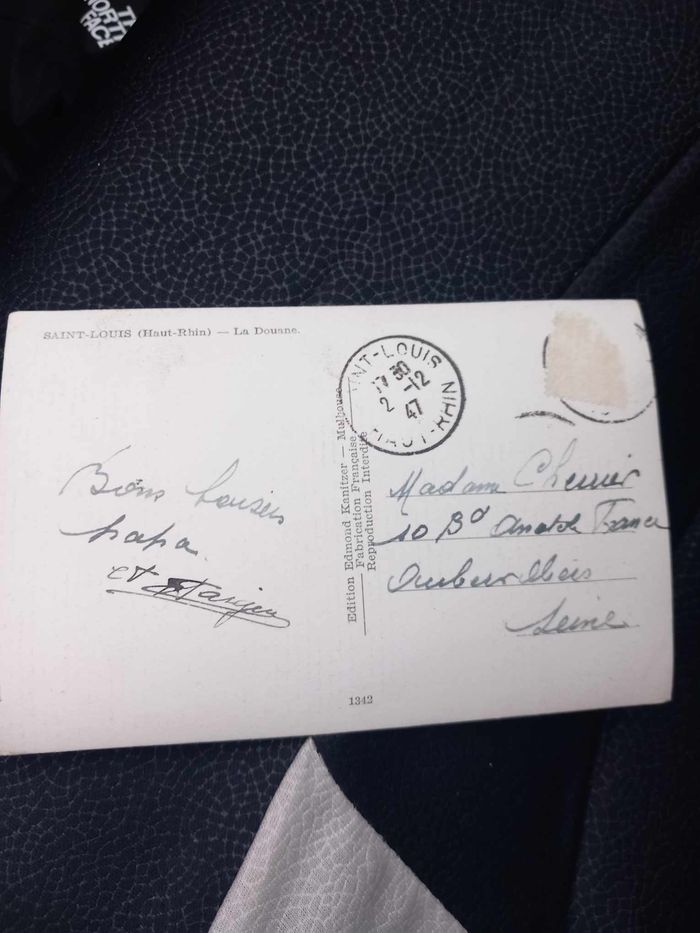 THE
NORTH
FACE
SAINT-LOUIS (Haut-Rhin) — La Douane.
INT-LOUIS
17 30
2 -12
47
HAUT-RHIN
Bons baisers
papa
et
Edition Edmond Kanitzer — Mulhouse
Fabrication Française
Reproduction Interdite
Madame
10 Bd Anatole France
Aubervilliers
Seine
1342